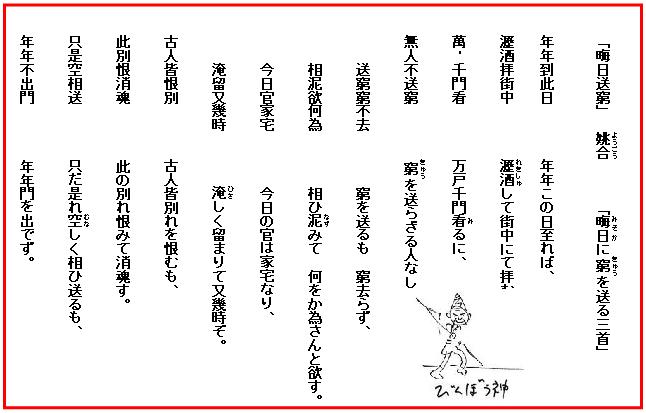 「晦日送窮」 姚合 「晦日に窮を送る三首」
年年到此日 年年この日至れば、
瀝酒拝街中 瀝酒して街中にて拝む
萬・千門看 万戸千門看るに、
無人不送窮 窮を送らざる人なし
送窮窮不去 窮を送るも 窮去らず、
相泥欲何為 相ひ泥みて 何をか為さんと欲す。
今日官家宅 今日の官は家宅なり、
淹留又幾時 淹しく留まりて又幾時ぞ。
古人皆恨別 古人皆別れを恨むも、
此別恨消魂 此の別れ恨みて消魂す。
只是空相送 只だ是れ空しく相ひ送るも、
年年不出門 年年門を出でず。
びんぼう神